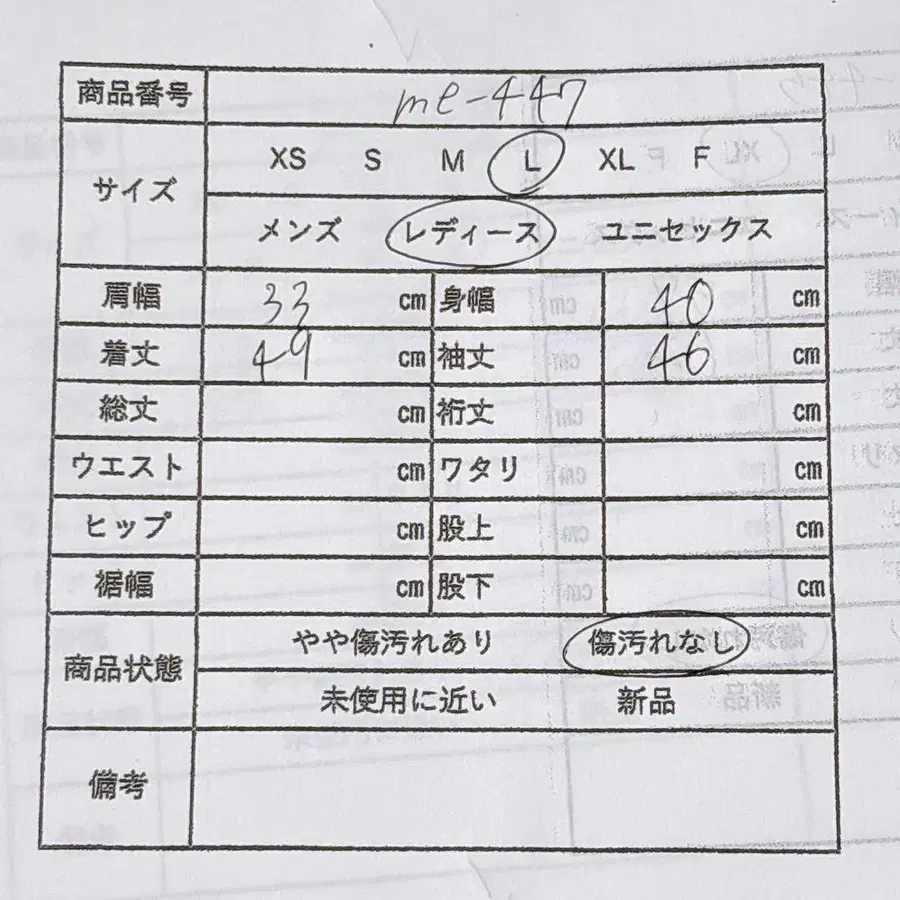 商品番号 me-447
サイズ XS S M L XL F
メンズ レディース ユニセックス
肩幅 33 cm 身幅 40 cm
着丈 49 cm 袖丈 46 cm
総丈 cm 裄丈 cm
ウエスト cm ワタリ cm
ヒップ cm 股上 cm
裾幅 cm 股下 cm
商品状態 やや傷汚れあり 傷汚れなし
未使用に近い 新品
備考